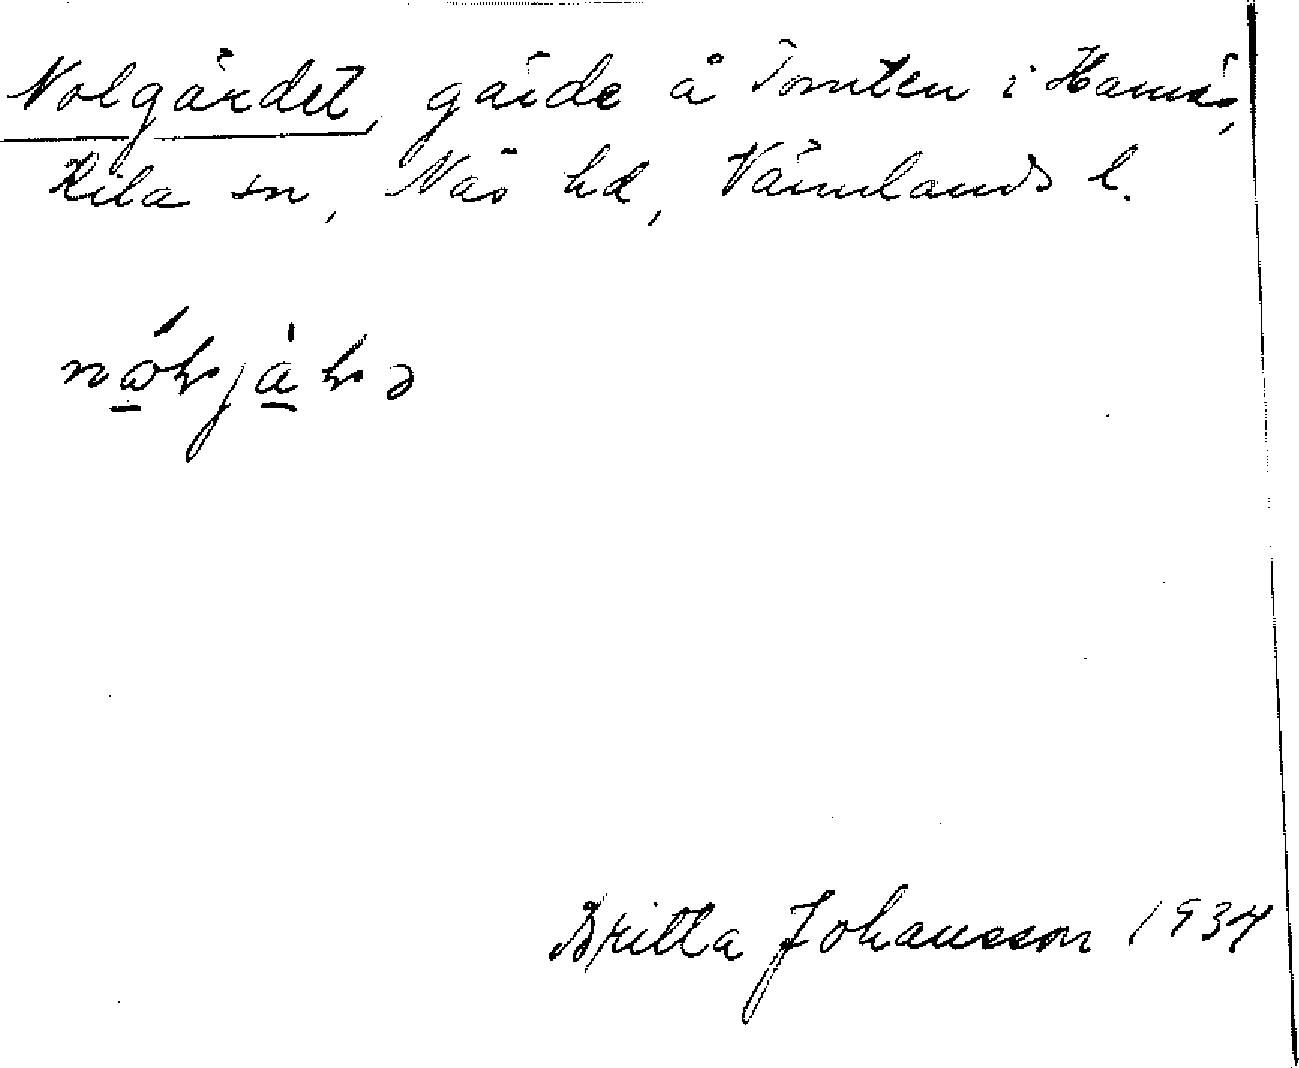 Nolgärdet, gärde å Tomten i Hamrås,
Kila sn, Näs hd, Värmlands l.
Britta Johansson 1934